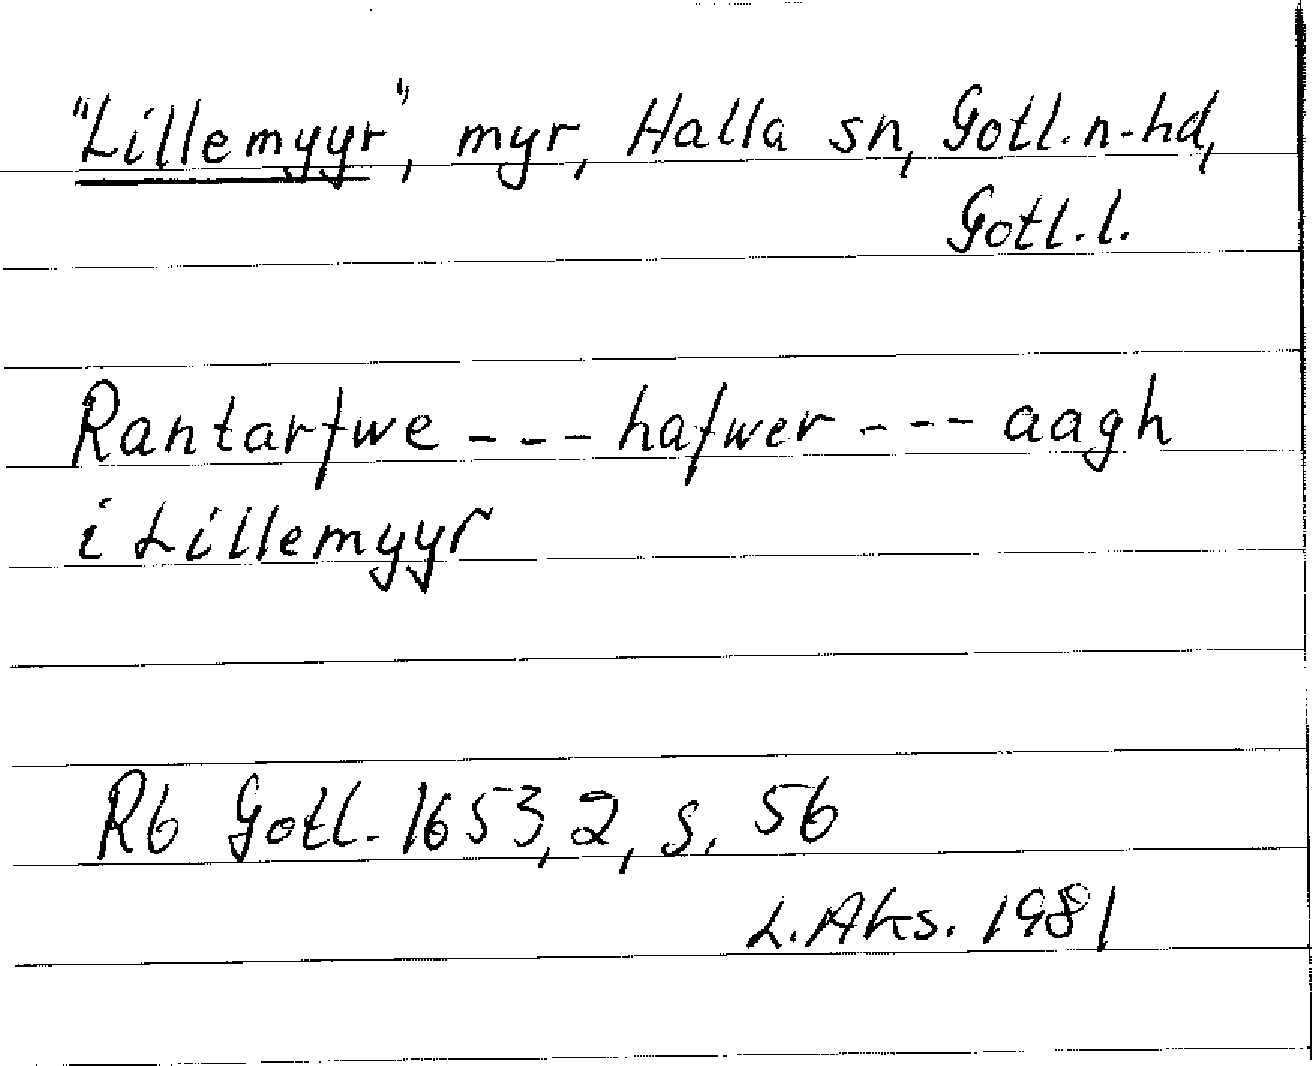 "Lillemyyr", myr, Halla sn, Gotl. n-hd,
Gotl. l.
Rantarfwe --- hafwer --- aagh
i Lillemyyr
Rb Gotl. 1653,2, s. 56
L. Aks. 1981